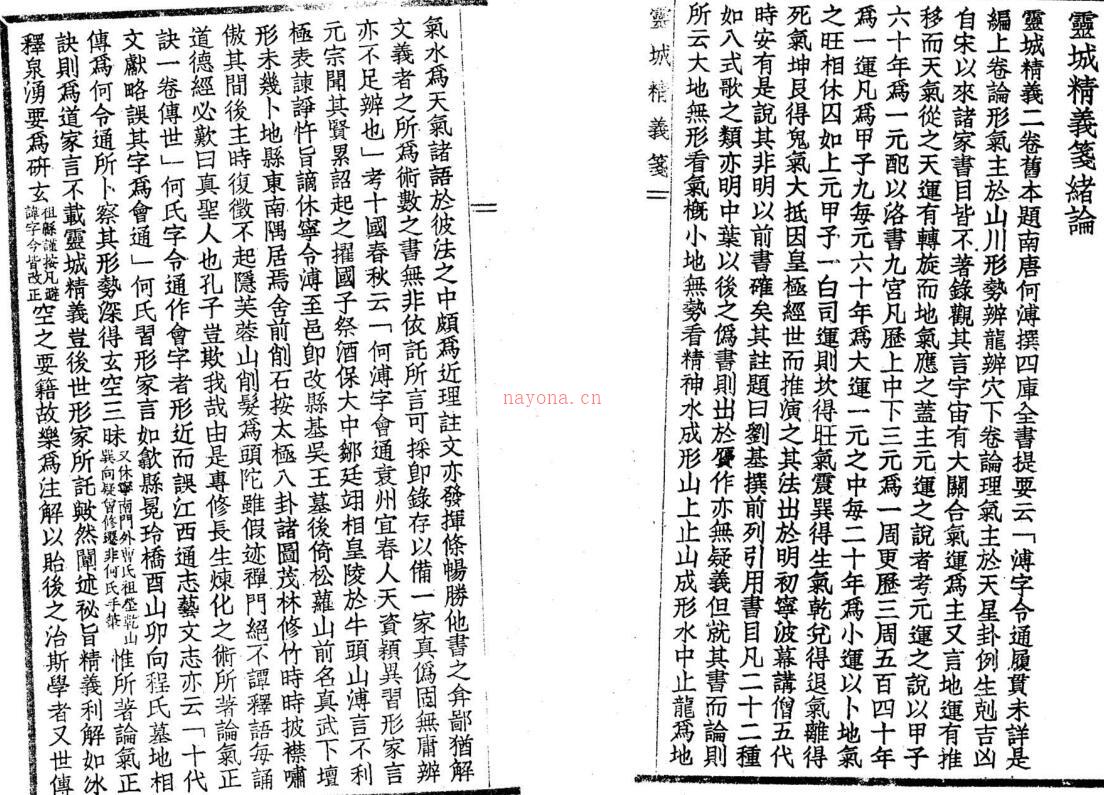 靈城精義箋緒論
靈城精義二卷舊本題南唐何溥撰四庫全書提要云「溥字令通履貫未詳是
編上卷論形氣主於山川形勢辨龍辨穴下卷論理氣主於天星卦例生剋吉凶
自宋以來諸家書目皆不著錄觀其言宇宙有大關合氣運為主又言地運有推
移而天氣從之天運有轉旋而地氣應之蓋主元運之說者考元運之說以甲子
六十年為一元配以洛書九宮凡歷上中下三元為一周更歷三周五百四十年
為一運凡為甲子九每元六十年為大運一元之中每二十年為小運以卜地氣
之旺相休囚如上元甲子一白司運則坎得旺氣震巽得生氣乾兌得退氣離得
死氣坤艮得鬼氣大抵因皇極經世而推演之其法出於明初寧波幕講僧五代
時安有是說其非明以前書確矣其註題曰劉基撰前列引用書目凡二十二種
如八式歌之類亦明中葉以後之偽書則出於贗作亦無疑義但就其書而論則
所云大地無形看氣概小地無勢看精神水成形山上止山成形水中止龍為地
靈城精義箋
氣水為天氣諸語於彼法之中頗為近理註文亦發揮條暢勝他書之弇鄙猶解
文義者之所為術數之書無非依託所言可採即錄存以備一家真偽固無庸辨
亦不足辨也」考十國春秋云「何溥字會通袁州宜春人天資穎異習形家言
元宗聞其賢累詔起之擢國子祭酒保大中鄒廷翊相皇陵於牛頭山溥言不利
極表諫諍忤旨謫休寧令溥至邑即改縣基吳王墓後倚松蘿山前名真武下壇
形未幾卜地縣東南隅居焉舍前削石按太極八卦諸圖茂林修竹時時披襟嘯
傲其間後主時復徵不起隱芙蓉山削髮為頭陀雖假迹禪門絕不譚釋語每誦
道德經必歎曰真聖人也孔子豈欺我哉由是專修長生煉化之術所著論氣正
訣一卷傳世」何氏字令通作會字者形近而誤江西通志藝文志亦云「十代
文獻略誤其字為會通」何氏習形家言如歙縣晃玲橋酉山卯向程氏墓地相
傳為何令通所卜察其形勢深得玄空三昧又休寧南門外曹氏祖塋乾山巽向疑曾修遷非何氏手筆惟所著論氣正
訣則為道家言不載靈城精義豈後世形家所託歟然闡述秘旨精義利解如冰
釋泉湧要為研玄祖縣謹按凡避諱字今皆改正空之要籍故樂為注解以貽後之治斯學者又世傳
nayona.cn